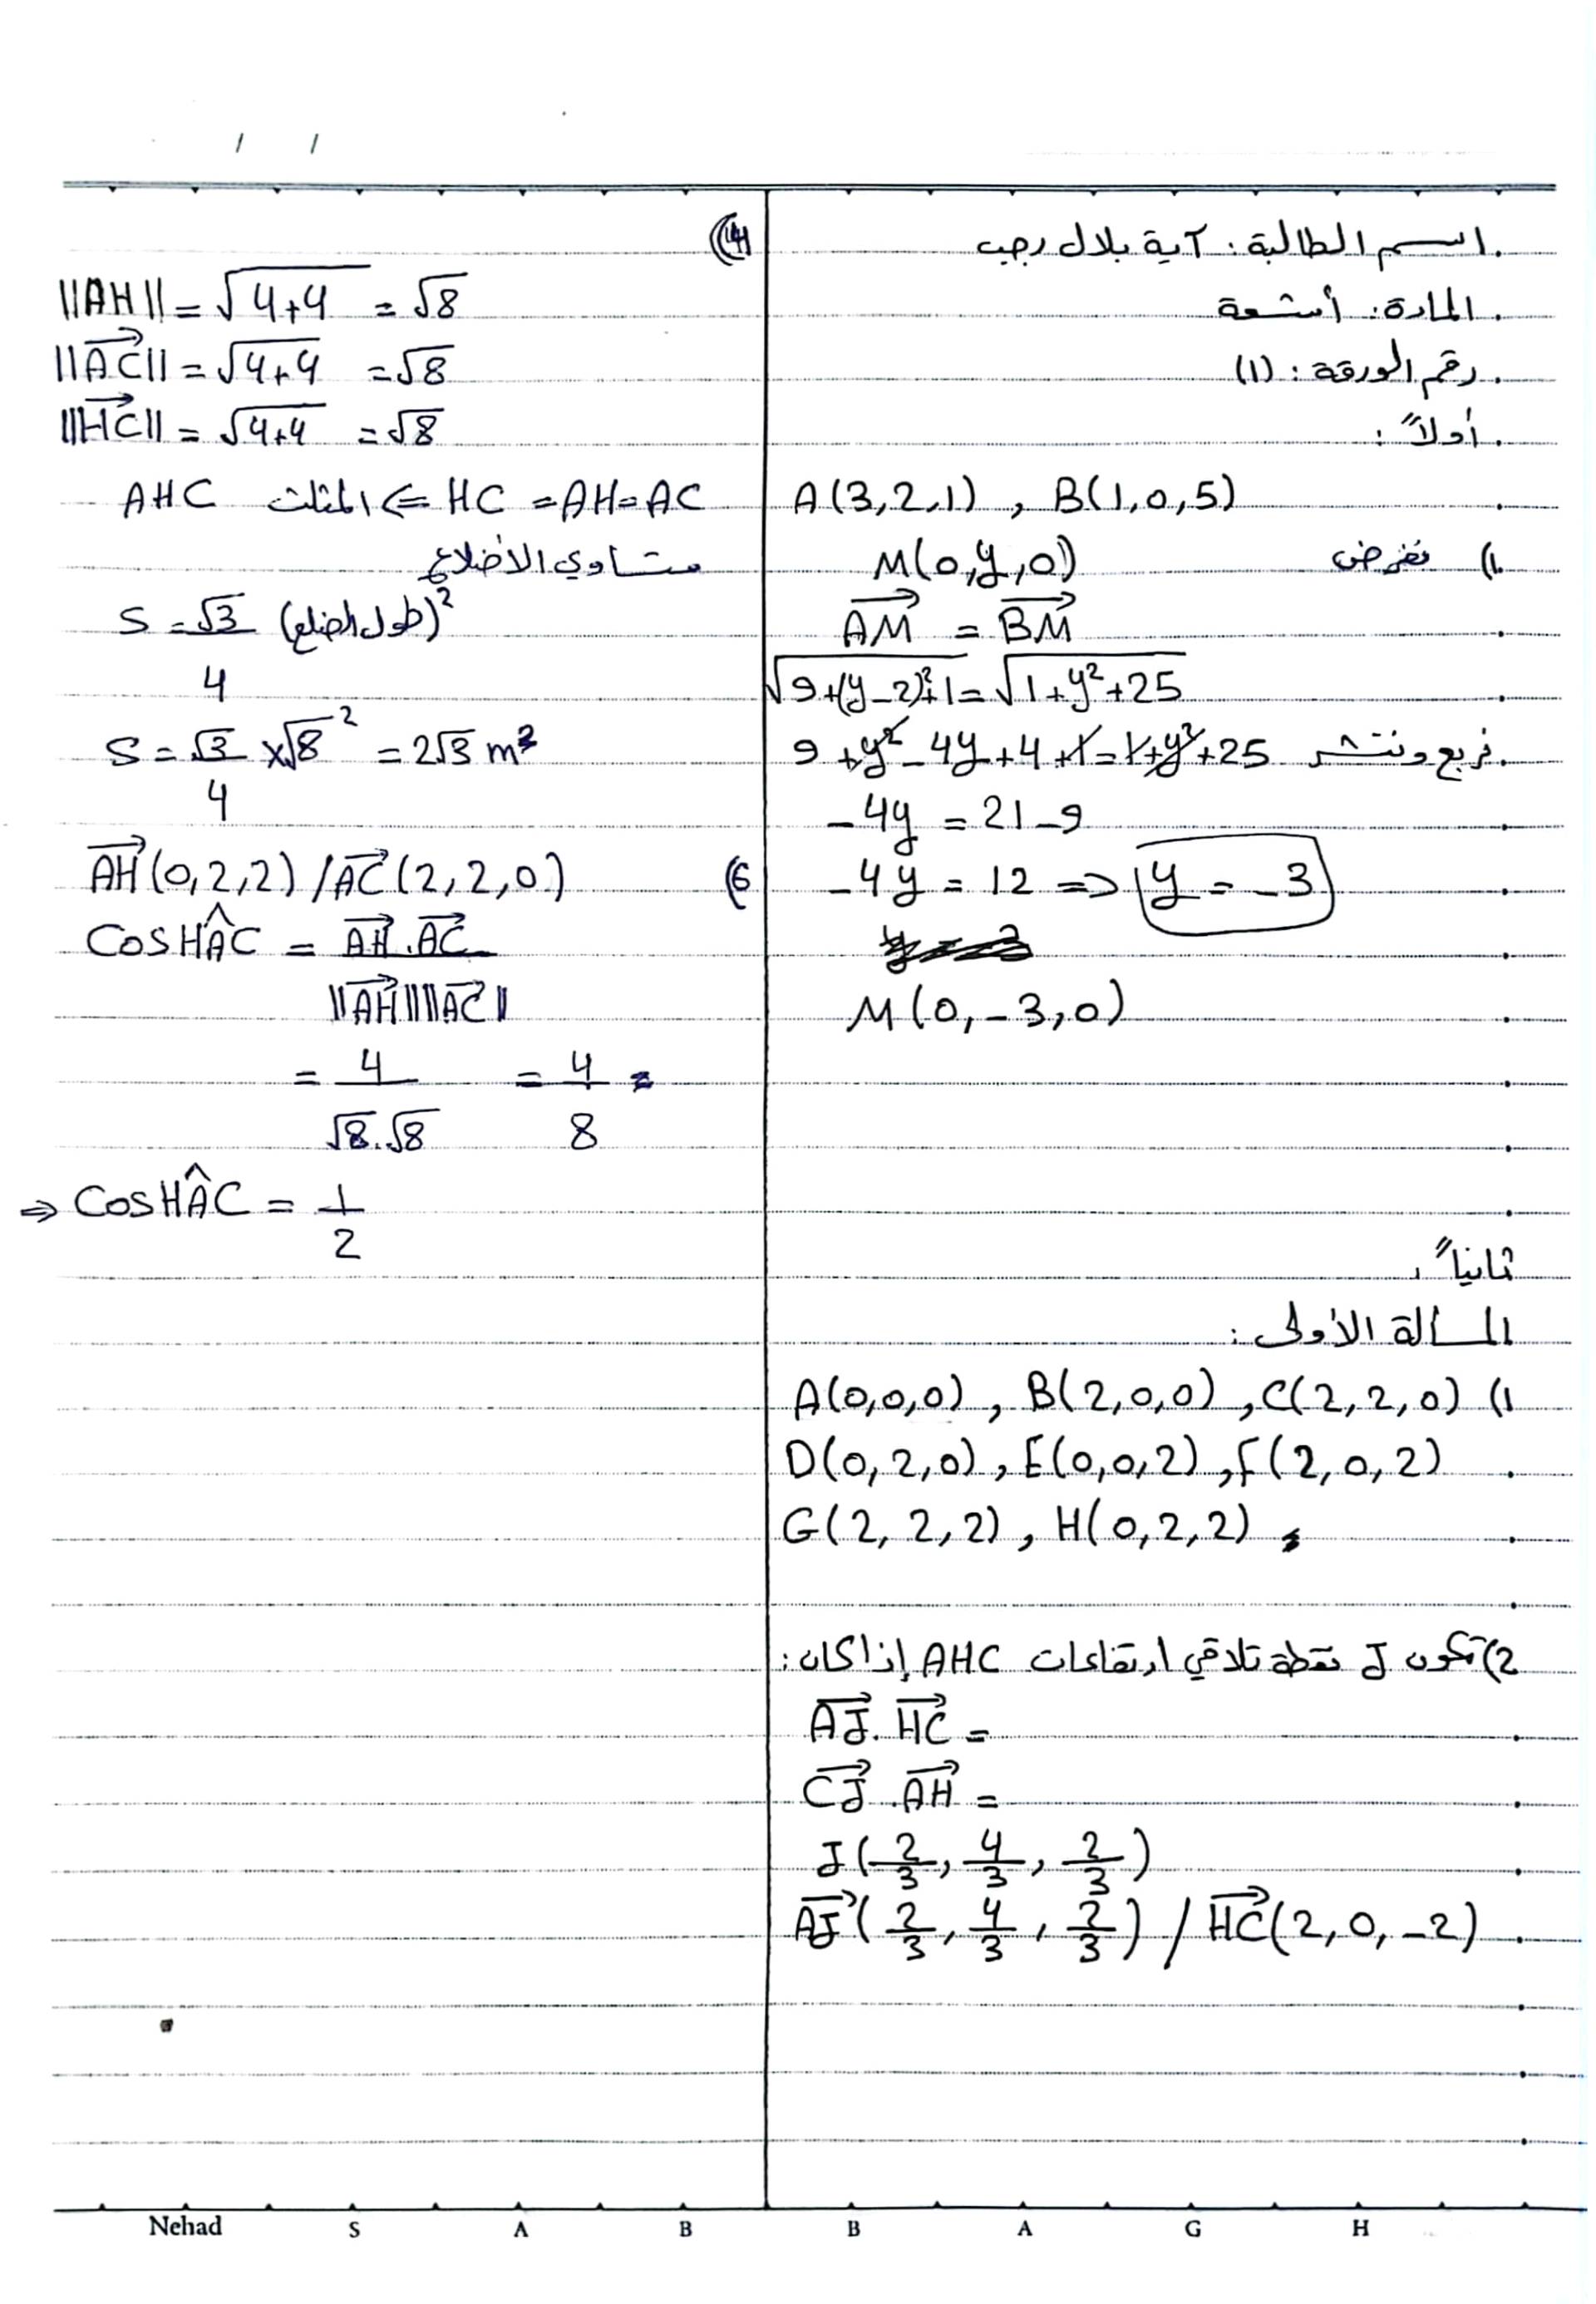 / /
اسم الطالبة: آية بلال رجب
المادة: أشعة
رقم الورقة: (1)
أولاً:
A(3,2,1) , B(1,0,5)
1) نفرض M(0,y,0)
AM = BM
√9+(y-2)²+1 = √1+y²+25
نربع وننشر 9+y²-4y+4+1=1+y²+25
-4y = 21-9
-4y = 12 => y = -3
M(0,-3,0)
ثانياً:
المسألة الأولى:
1) A(0,0,0), B(2,0,0), C(2,2,0)
D(0,2,0), E(0,0,2), F(2,0,2)
G(2,2,2), H(0,2,2)
2) تكون J نقطة تلاقي ارتفاعات AHC إذا كان:
AJ . HC =
CJ . AH =
J(2/3, 4/3, 2/3)
AJ(2/3, 4/3, 2/3) / HC(2,0,-2)
4)
||AH|| = √4+4 = √8
||AC|| = √4+4 = √8
||HC|| = √4+4 = √8
HC = AH = AC ⇐ المثلث AHC
متساوي الأضلاع
S = √3/4 (طول الضلع)²
S = √3/4 × √8² = 2√3 m²
6) AH(0,2,2) / AC(2,2,0)
CosHÂC = AH . AC / ||AH|| ||AC||
= 4/√8.√8 = 4/8 =
⇒ CosHÂC = 1/2
Nehad S A B B A G H